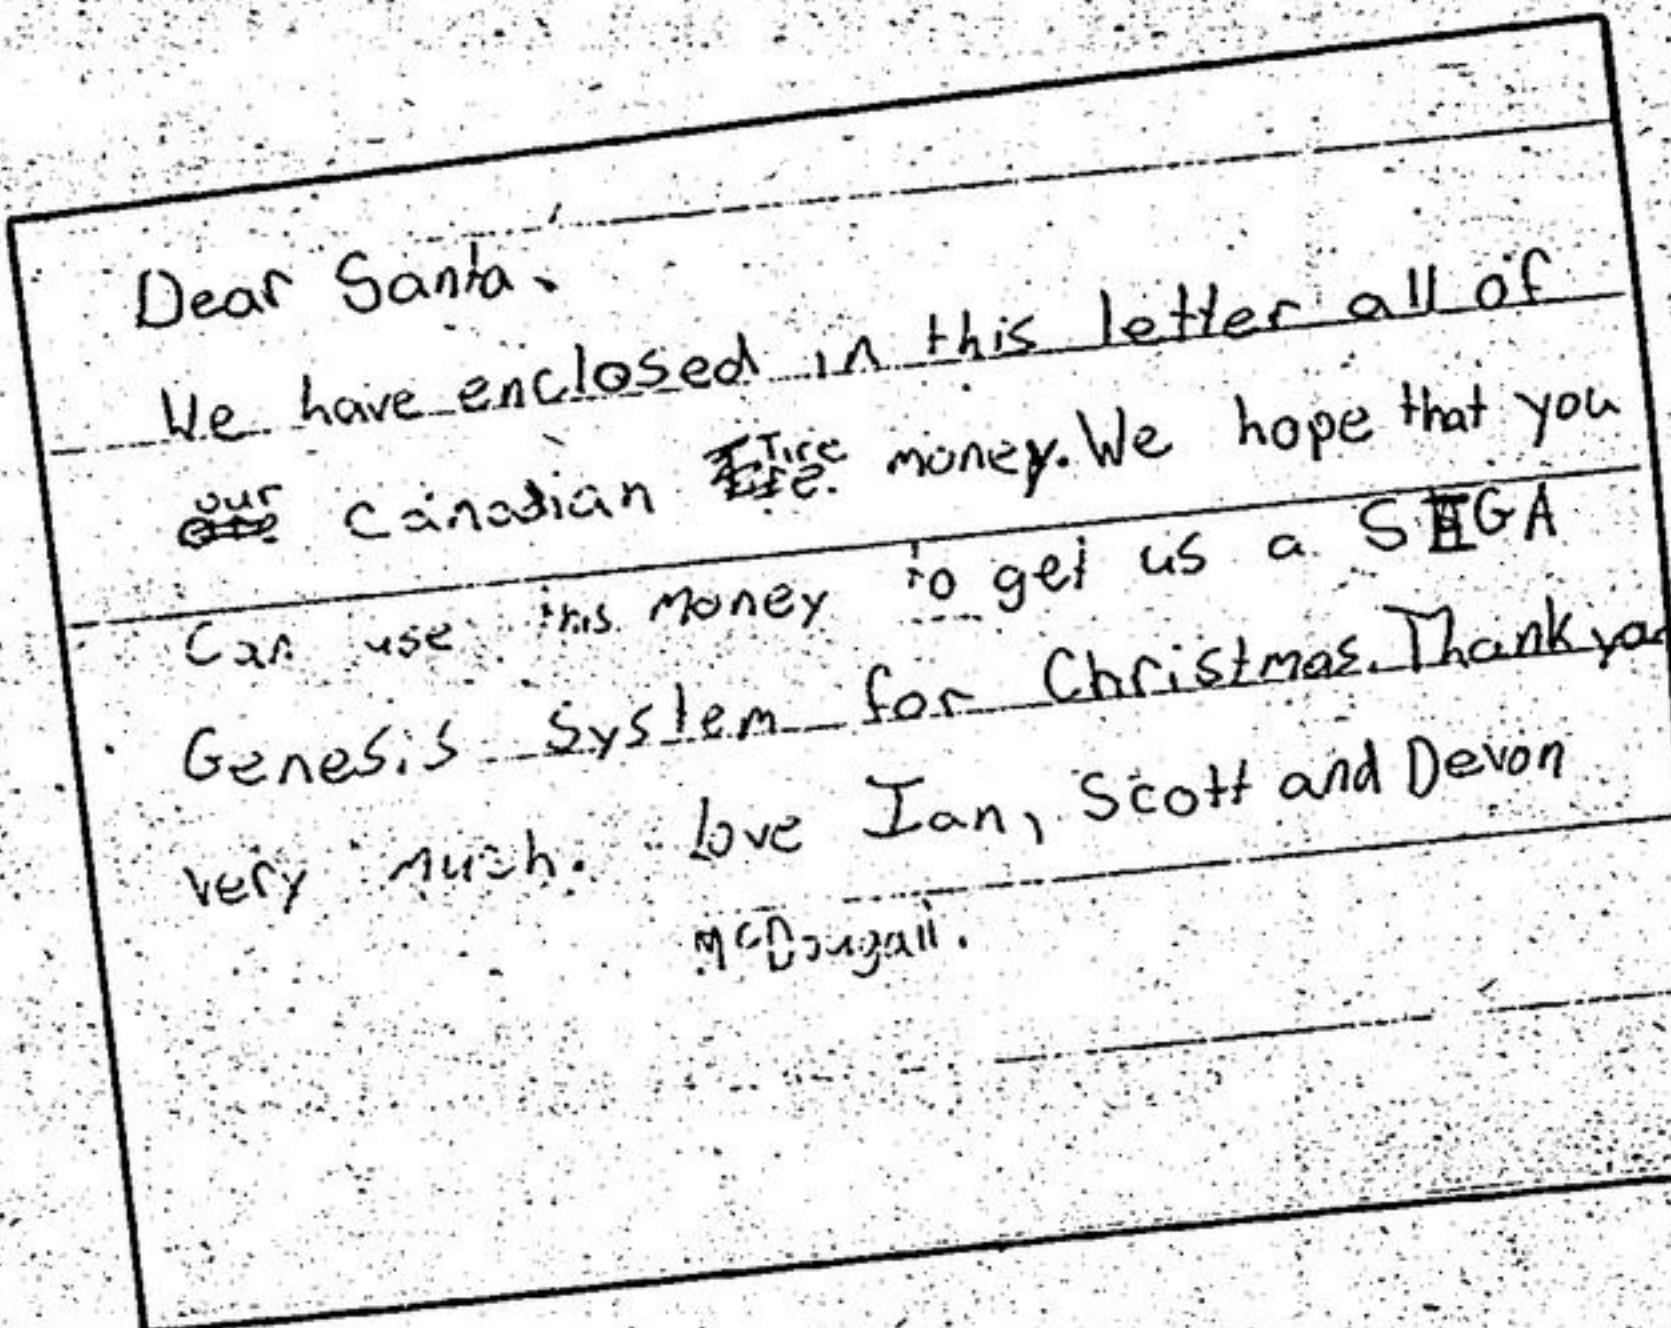 Dear Santa,
We have enclosed in this letter all of
our Canadian Tire money. We hope that you
Can use this Money to get us a SEGA
Genesis System for Christmas. Thank you
very much. Love Ian, Scott and Devon
McDougall.